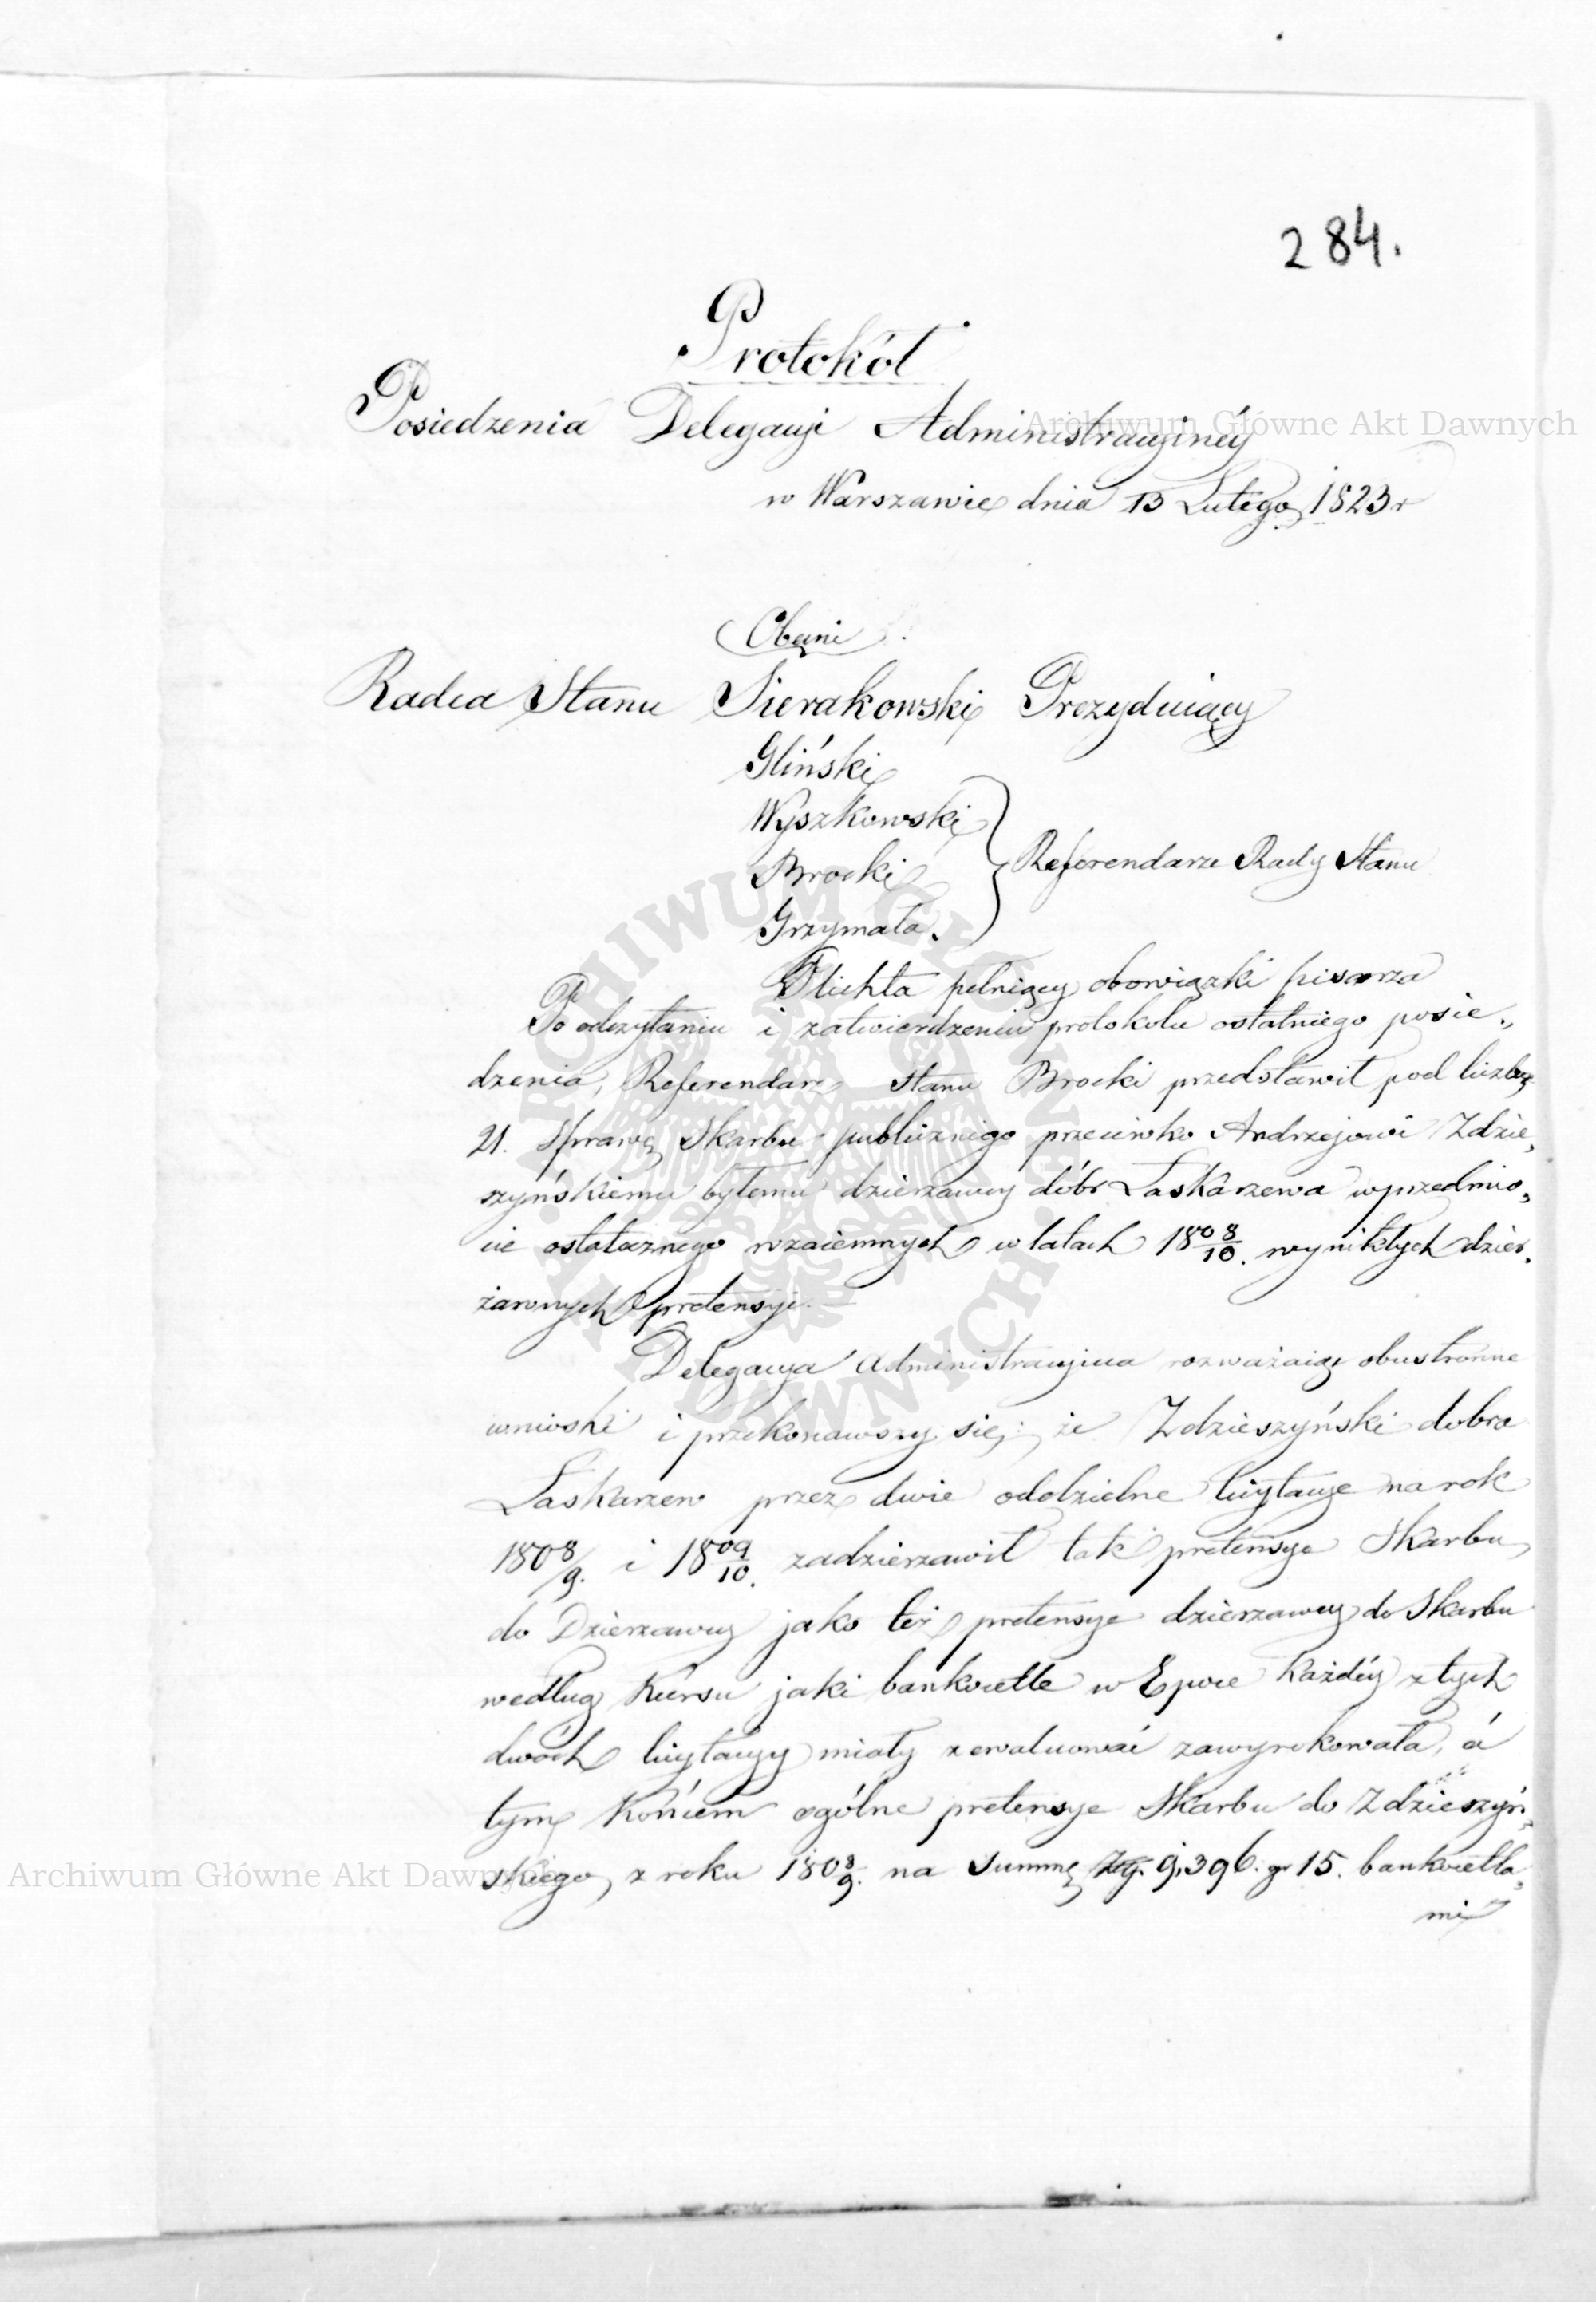 284.
Protokół
Posiedzenia Delegacyi Administracyinéy
w Warszawie dnia 13 Lutego 1823 r
Obecni
Radca Stanu Sierakowski Prezyduiący
Gliński
Wyszkowski
Brocki
Referendarze Rady Stanu
Grzymała.
Plichta pełniący obowiązki pisarza
Po odczytaniu i zatwierdzeniu protokołu ostatniego posie„
dzenia, Referendarz Stanu Brocki przedstawił pod liczbą
21. Sprawę Skarbu publicznego przeciwko Andrzejowi Zdzie„
szyńskiemu byłemu dzierzawcy dóbr Łaskarzewa w przedmio„
cie ostatecznego wzaiemnych w latach 1808/10. wynikłych dzier„
żawnych pretensyi.
Delegacya Administracyina rozważaiąc obustronne
wnioski i przekonawszy się, że Zdzieszyński dobra
Łaskarzew przez dwie oddzielne licytacye na rok
1808/9. i 1809/10. zadzierzawił tak pretensye Skarbu
do Dzierzawcy jako też pretensye dzierzawcy do Skarbu
według kursu jaki bankocetle w Epoce każdéy z tych
dwóch licytacyy miały zewaluować zawyrokowała, á
tym końcem ogólne pretensye Skarbu do Zdzieszyń„
skiego z roku 1808/9. na Summę Złp. 9,396. gr 15. bankocetla„
mi
Archiwum Główne Akt Dawnych
Archiwum Główne Akt Dawnych
ARCHIWUM GŁÓWNE AKT DAWNYCH